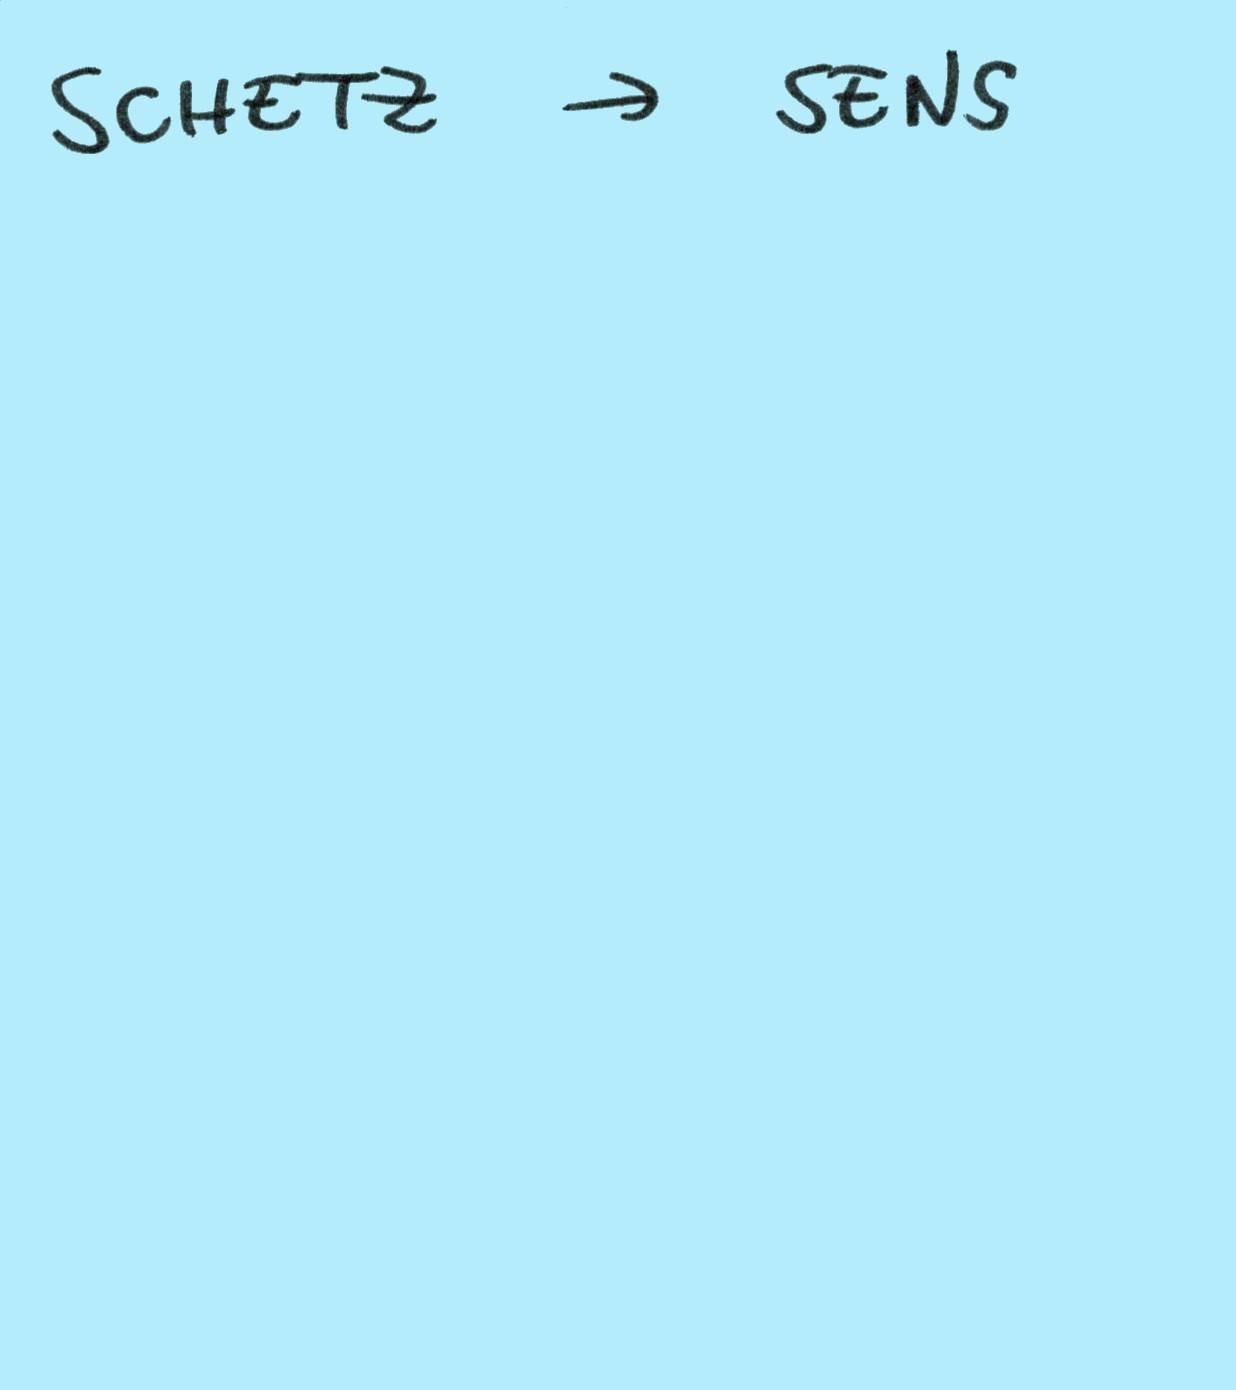 SCHETZ → SENS